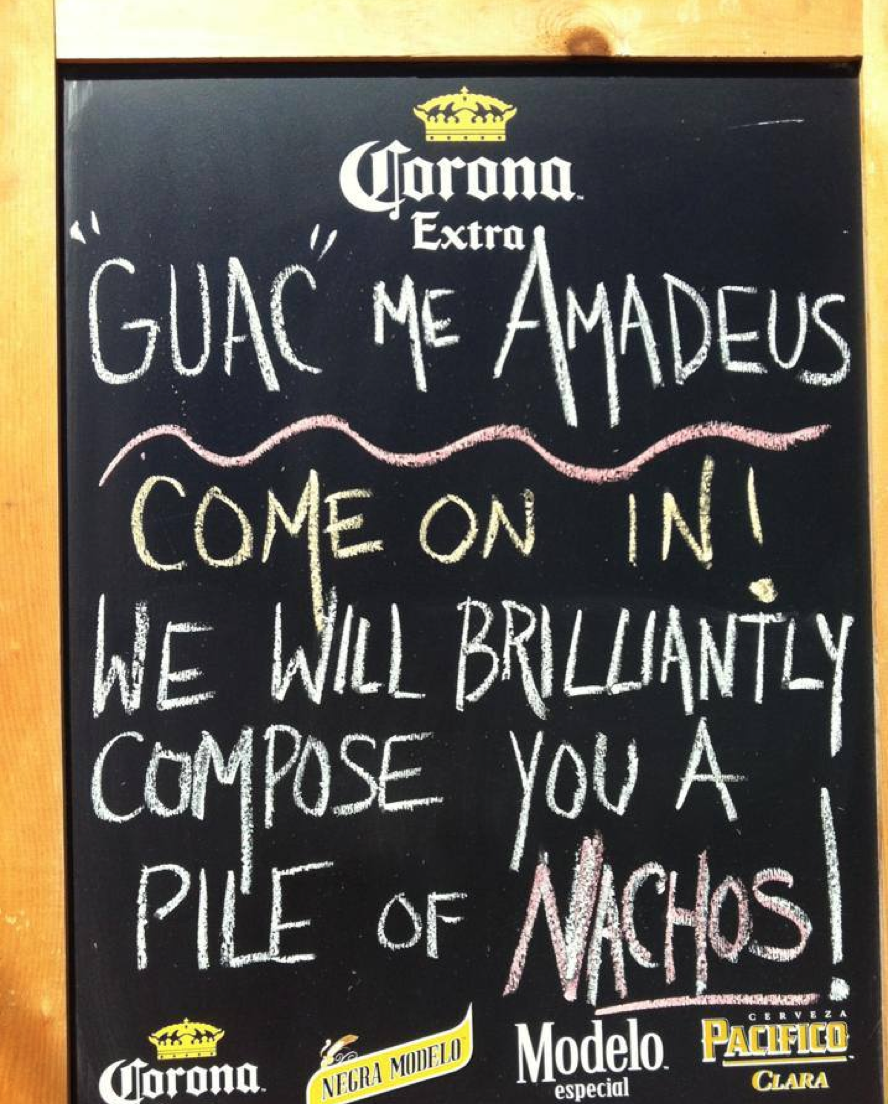 Corona
Extra
"GUAC" ME AMADEUS
COME ON IN!
WE WILL BRILLIANTLY
COMPOSE YOU A
PILE OF NACHOS!
Corona
NEGRA MODELO
Modelo
especial
CERVEZA
PACIFICO
CLARA